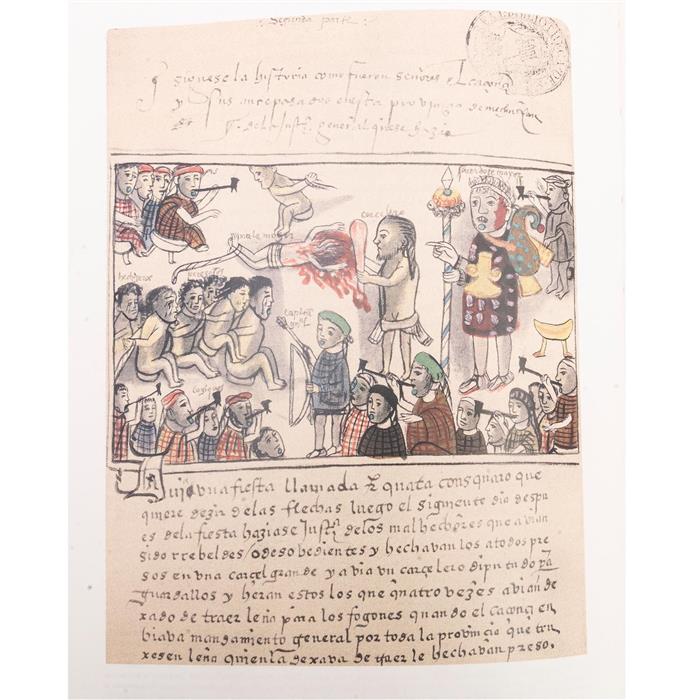 Segunda parte
Siguese la historia como fueron señores el caçonçi
y sus antepasados en esta provinçia de mechuacan
de la Just^a general que se hazia
sacerdote mayor
carçelero
hechiçeros
capitan
gn^l
caçiques
Avia una fiesta llamada Equata consquaro que
quiere dezir de las flechas luego el siguiente dia despu
es dela fiesta haziase Just^a delos malhechores que avian
sido rrebeldes / o desobedientes y hechavan los a todos pre
sos en una carçel grande y avia un carçelero diputado pa
guardallos y heran estos los que quatro vezes avian de
xado de traer leña para los fogones quando el caçonçi en
biava mandamiento general por toda la provinçia que tru
xesen leña quien la dexava de traer le hechavan preso.